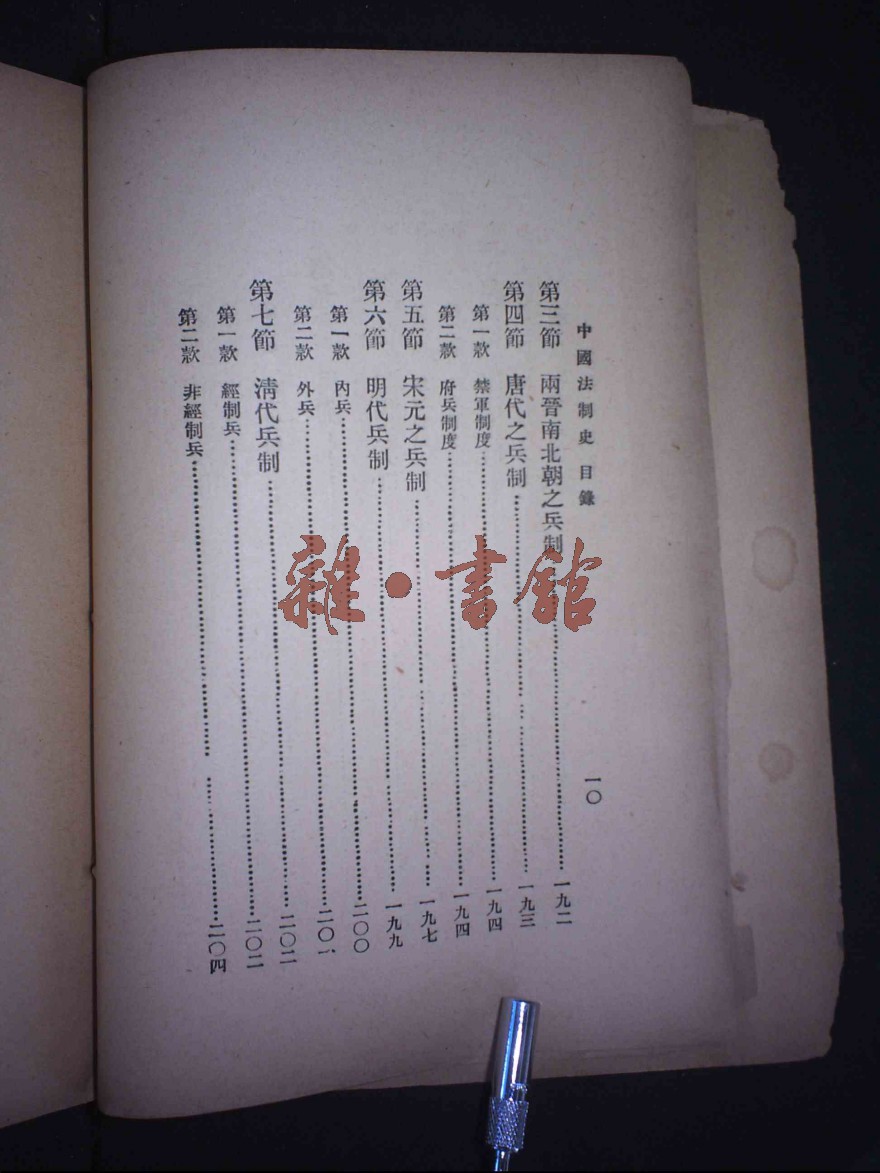 中國法制史 目錄
一〇
第三節 兩晉南北朝之兵制……一九二
第四節 唐代之兵制……一九三
第一款 禁軍制度……一九四
第二款 府兵制度……一九四
第五節 宋元之兵制……一九七
第六節 明代兵制……一九九
第一款 內兵……二〇〇
第二款 外兵……二〇一
第七節 清代兵制……二〇二
第一款 經制兵……二〇二
第二款 非經制兵……二〇四
雜·書館